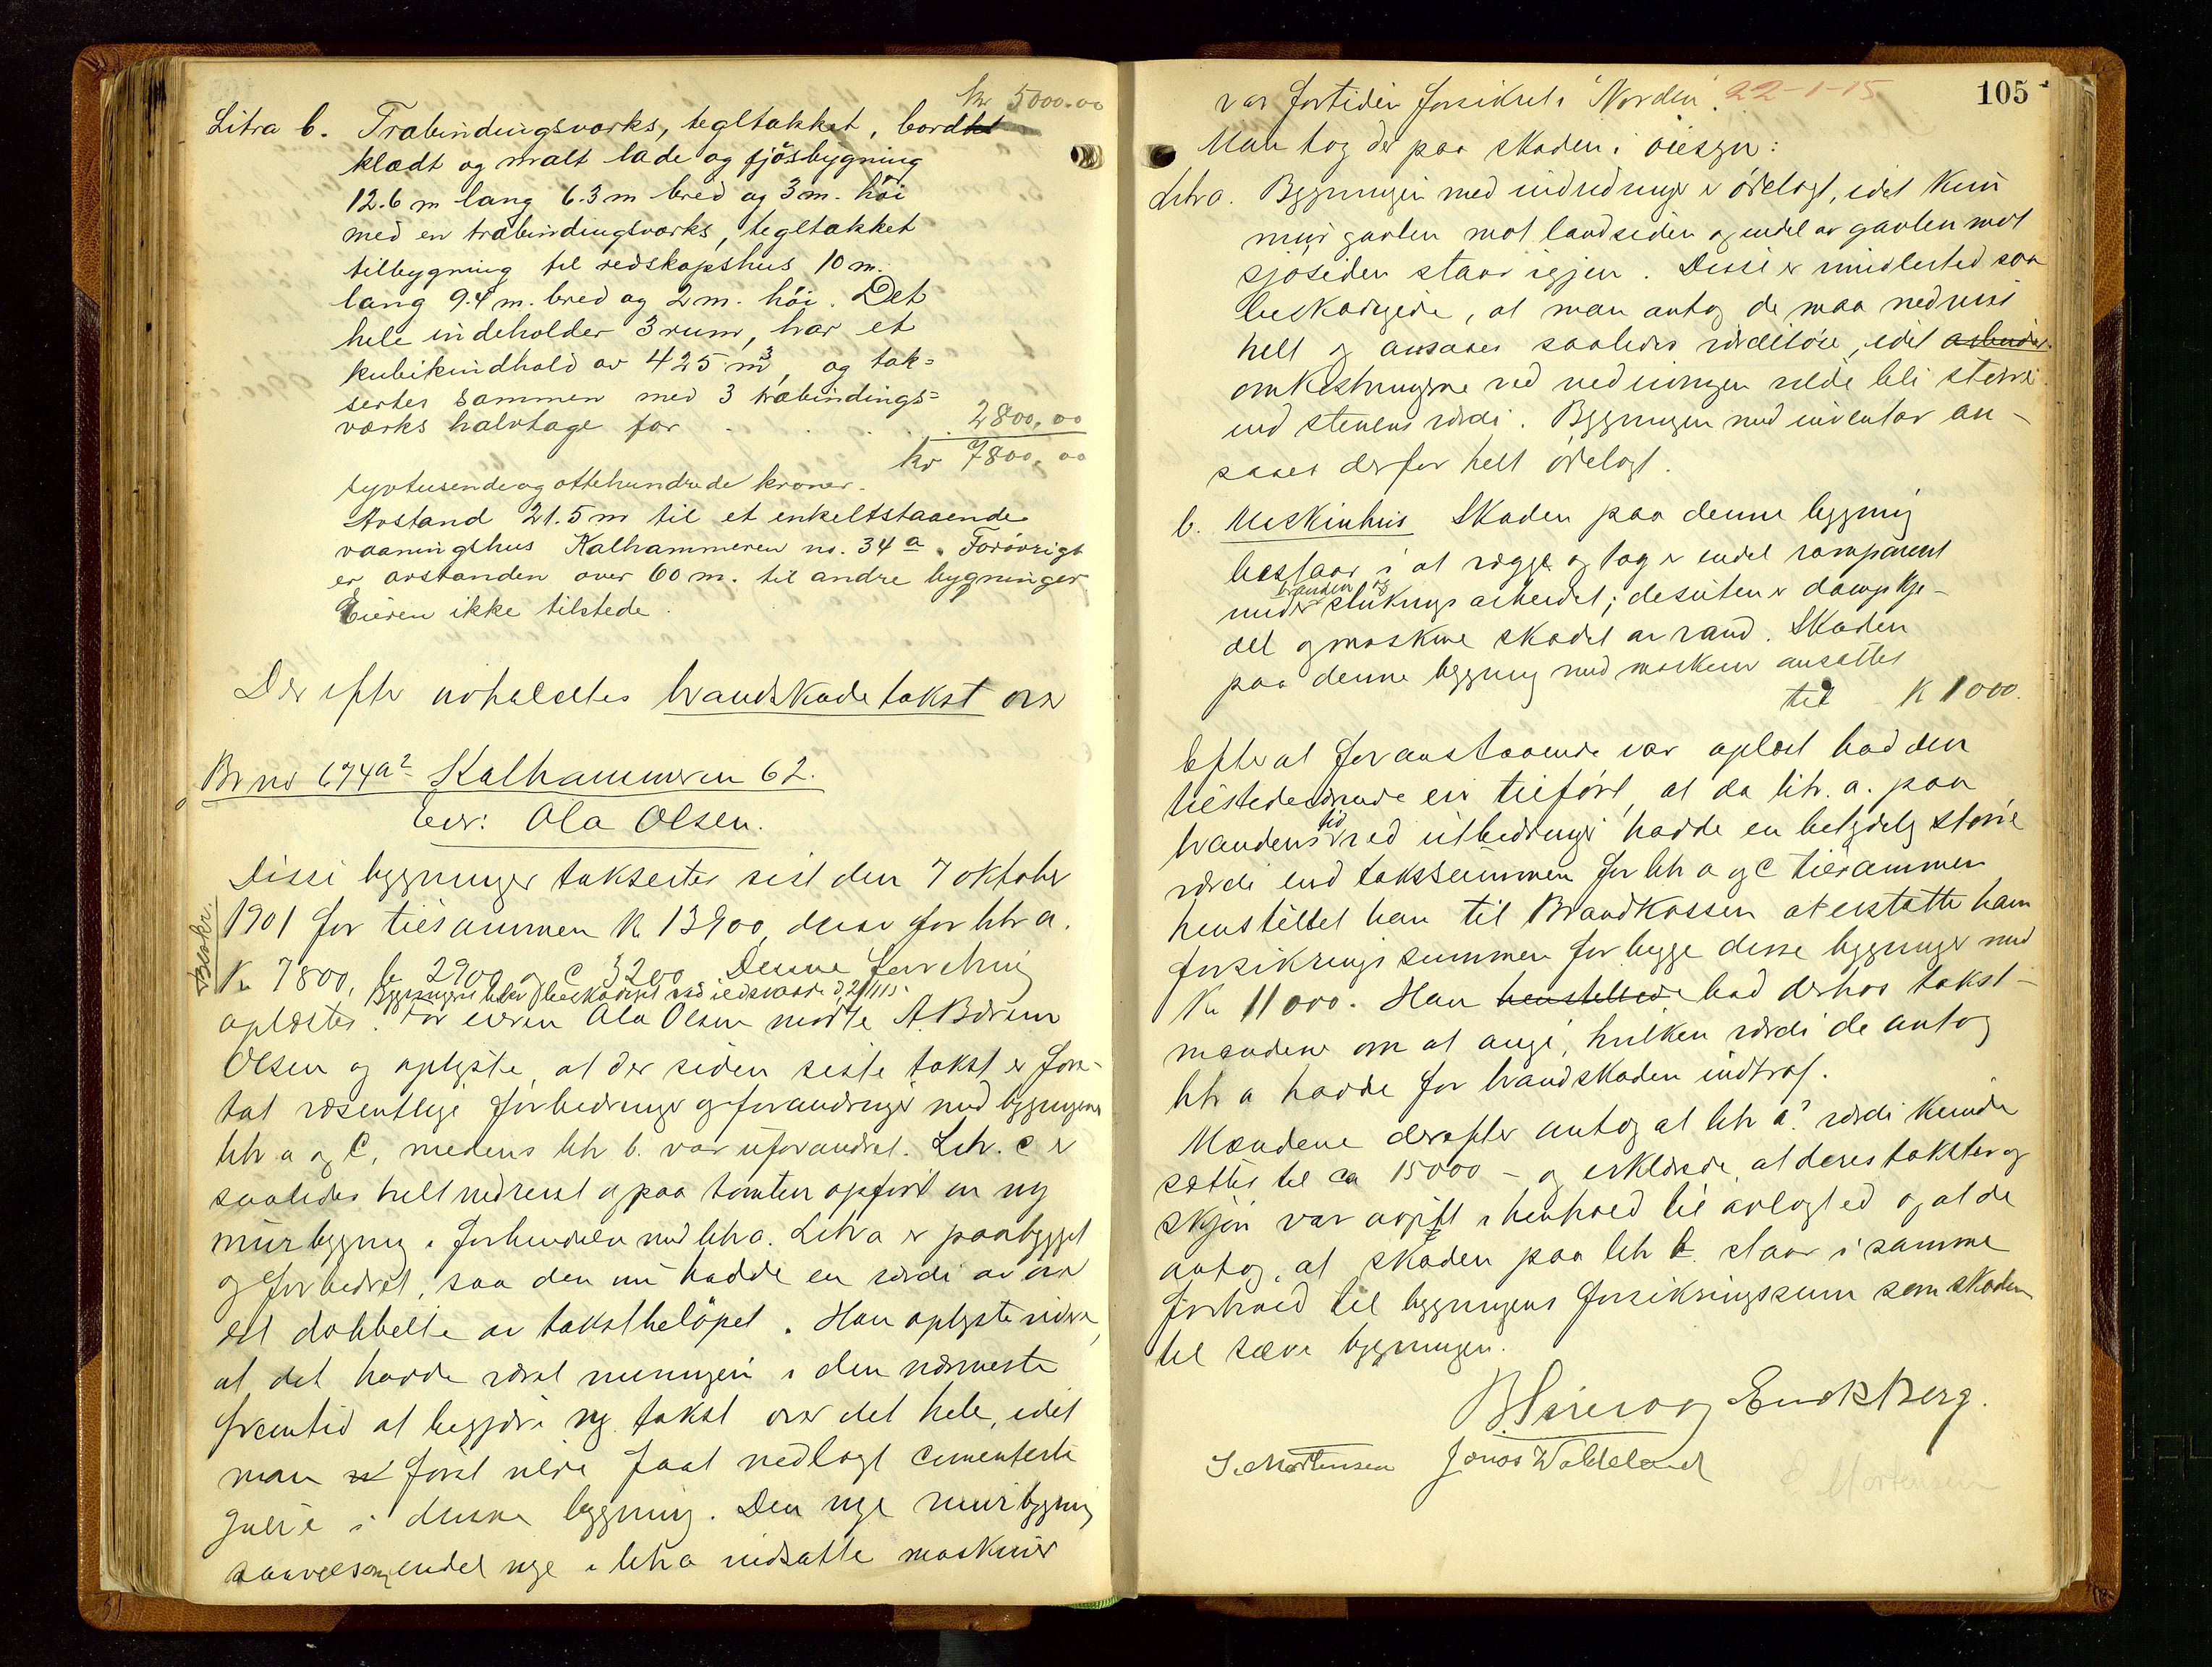 kr 5000.00
Litra b. Træbindingsverks, tegltækket, bord
klædt og malt lade og fjösbygning
12.6 m lang 6.3 m bred og 3 m. höi
med en træbindingsværks, tegltækket
tilbygning til redskapshus 10 m.
lang 9.4 m. bred og 2 m. höi. Det
hele indeholder 3 rum, har et
kubikindhold av 425 m³, og tak=
sertes sammen med 3 træbindings=
værks halvtage for . . . . 2800.00
kr 7800.00
syvtusendeogottehundrede kroner.
Avstand 21.5 m til et enkeltstaaende
vaaningshus Kalhammeren no. 34 a. Forövrigt
er avstanden over 60 m. til andre bygninger
Eieren ikke tilstede.
Derefter avholdtes brandskadetakst over
Br no 674a² Kalhammeren 62.
Eier: Ola Olsen.
Disse bygninger taksertes sist den 7 oktober
1901 for tilsammen Kr 13900, derav for litr a.
Beskr.
Kr 7800, b 2900 og C 3200. Denne forretning
Bygningene blev beskadiget ved ildsvaade d. 2/1 15.
oplæstes. For eieren Ola Olsen mødte A. Bærum
Olsen og oplyste, at der siden siste takst er fore-
tat væsentlige forbedringer og forandringer med bygningene
litr a og C, medens litr b. var uforandret. Litr. c er
saaledes helt nedrevet og paa tomten opført en ny
murbygning i forbindelse med litr a. Litr a er paabygget
og forbedret, saa den nu hadde en værdi av over
det dobbelte av takstbeløpet. Han oplyste videre,
at det hadde været meningen i den nærmeste
fremtid at begjære ny takst over det hele, idet
man først vilde faat nedlagt cementerte
gulve i denne bygning. Den nye murbygning
saavelsom endel nye i litr a indsatte maskiner
105
var fortiden forsikret i "Norden". 22-1-15
Man tog der paa skaden i øiesyn:
Litr a. Bygningen med indredninger er ødelagt, idet kun
mur gavlen mot landsiden og endel av gavlen mot
sjøsiden staar igjen. Disse er imidlertid saa
beskadigede, at man antog de maa nedrives
helt og ansaaes saaledes værdiløse, idet arbeider
omkostningerne ved nedrivningen vilde bli større
end stenens værdi. Bygningen med inventar an-
saaes derfor helt ødelagt.
b. Maskinhus Skaden paa denne bygning
bestaar i at vægge og tag er endel ramponert
branden og
under slukningsarbeidet; desuten er dampkje-
del og maskine skadet av vand. Skaden
paa denne bygning med maskiner ansattes
til K 1000.
Efter at foranstaaende var oplæst bad den
tilstedeværende eier tilført, at da litr. a. paa
tid
brandens ved utbedringer hadde en betydelig større
værdi end takssummen for litr a og C tilsammen
henstillet han til Brandkassen at erstatte ham
forsikringssummen for begge disse bygninger med
Kr 11000. Han henstillede bad derhos takst-
mændene om at angi, hvilken værdi de antog
litr a hadde før brandskaden indtraf.
Mændene derefter antog at litr a's værdi kunde
sættes til ca 15000 - og erklærede, at deres takster og
skjøn var avgit i henhold til avlagt ed og at de
antog, at skaden paa litr b staar i samme
forhold til bygningens forsikringssum som skaden
til selve bygningen.
Enok Berg.
S. Mortensen Jonas Waldeland
E Mortensen